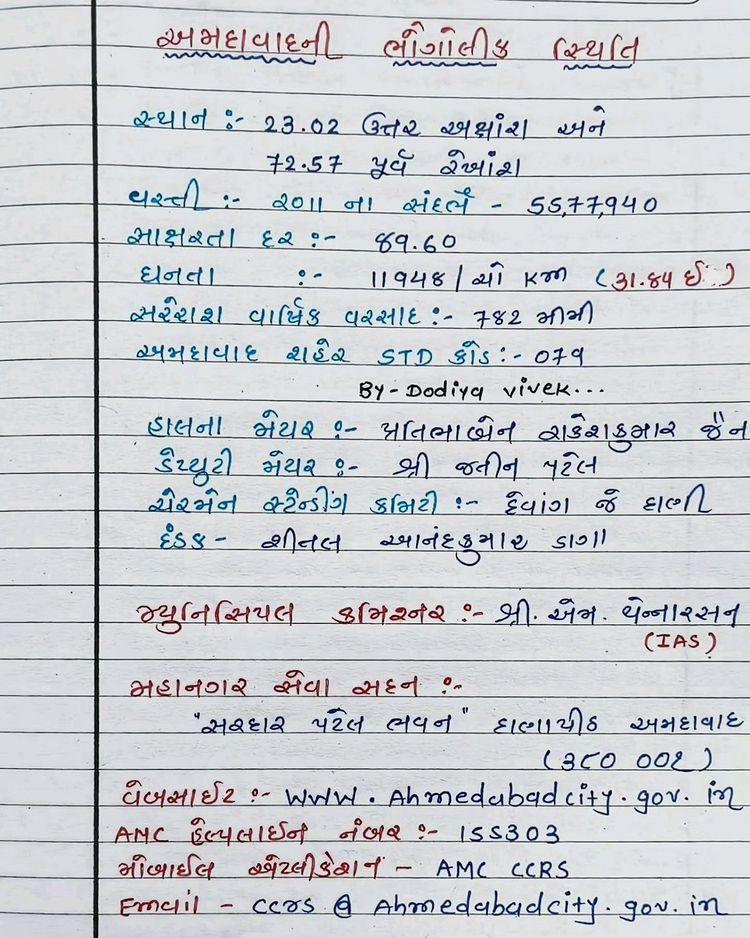 અમદાવાદની ભૌગોલીક સ્થિતિ
સ્થાન :- 23.02 ઉત્તર અક્ષાંશ અને
72.57 પૂર્વ રેખાંશ
વસ્તી :- ૨૦૧૧ ના સંદર્ભે - 55,77,940
સાક્ષરતા દર :- 89.60
ઘનતા :- 11948/ચો KM (31.84 ઈ.)
સરેરાશ વાર્ષિક વરસાદ :- 782 મીમી
અમદાવાદ શહેર STD કોડ :- 079
By - Dodiya vivek...
હાલના મેયર :- પ્રતિભાબેન રાકેશકુમાર જૈન
ડેપ્યુટી મેયર :- શ્રી જતીન પટેલ
ચેરમેન સ્ટેન્ડીંગ કમિટી :- દેવાંગ જે દાણી
દંડક - શીતલ આનંદકુમાર ડાગા
મ્યુનિસિપલ કમિશ્નર :- શ્રી. એમ. થેન્નારસન
(IAS)
મહાનગર સેવા સદન :-
"સરદાર પટેલ ભવન" દાણાપીઠ અમદાવાદ
(૩૮૦ ૦૦૧)
વેબસાઈટ :- WWW. Ahmedabadcity. gov. in
AMC હેલ્પલાઈન નંબર :- 155303
મોબાઈલ એપ્લીકેશન - AMC CCRS
Email - ccrs @ Ahmedabadcity. gov. in